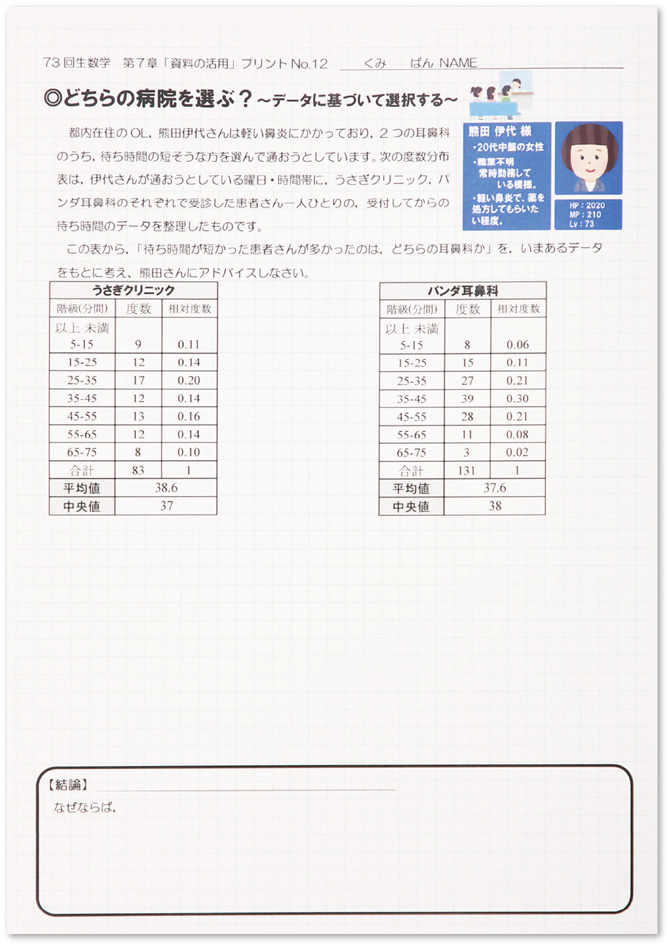 73回生数学　第7章「資料の活用」プリントNo.12　　くみ　　ばん NAME
◎どちらの病院を選ぶ？～データに基づいて選択する～
都内在住のOL，熊田伊代さんは軽い鼻炎にかかっており，2つの耳鼻科
のうち，待ち時間の短そうな方を選んで通おうとしています。次の度数分布
表は，伊代さんが通おうとしている曜日・時間帯に，うさぎクリニック，パ
ンダ耳鼻科のそれぞれで受診した患者さん一人ひとりの，受付してからの
待ち時間のデータを整理したものです。
この表から，「待ち時間が短かった患者さんが多かったのは，どちらの耳鼻科か」を，いまあるデータ
をもとに考え，熊田さんにアドバイスしなさい。
熊田 伊代 様
・20代中盤の女性
・職業不明
常時勤務して
いる模様。
・軽い鼻炎で，薬を
処方してもらいた
い程度。
HP：2020
MP：210
Lv：73
うさぎクリニック
階級(分間) 度数 相対度数
以上 未満
5-15 9 0.11
15-25 12 0.14
25-35 17 0.20
35-45 12 0.14
45-55 13 0.16
55-65 12 0.14
65-75 8 0.10
合計 83 1
平均値 38.6
中央値 37
パンダ耳鼻科
階級(分間) 度数 相対度数
以上 未満
5-15 8 0.06
15-25 15 0.11
25-35 27 0.21
35-45 39 0.30
45-55 28 0.21
55-65 11 0.08
65-75 3 0.02
合計 131 1
平均値 37.6
中央値 38
【結論】
なぜならば，